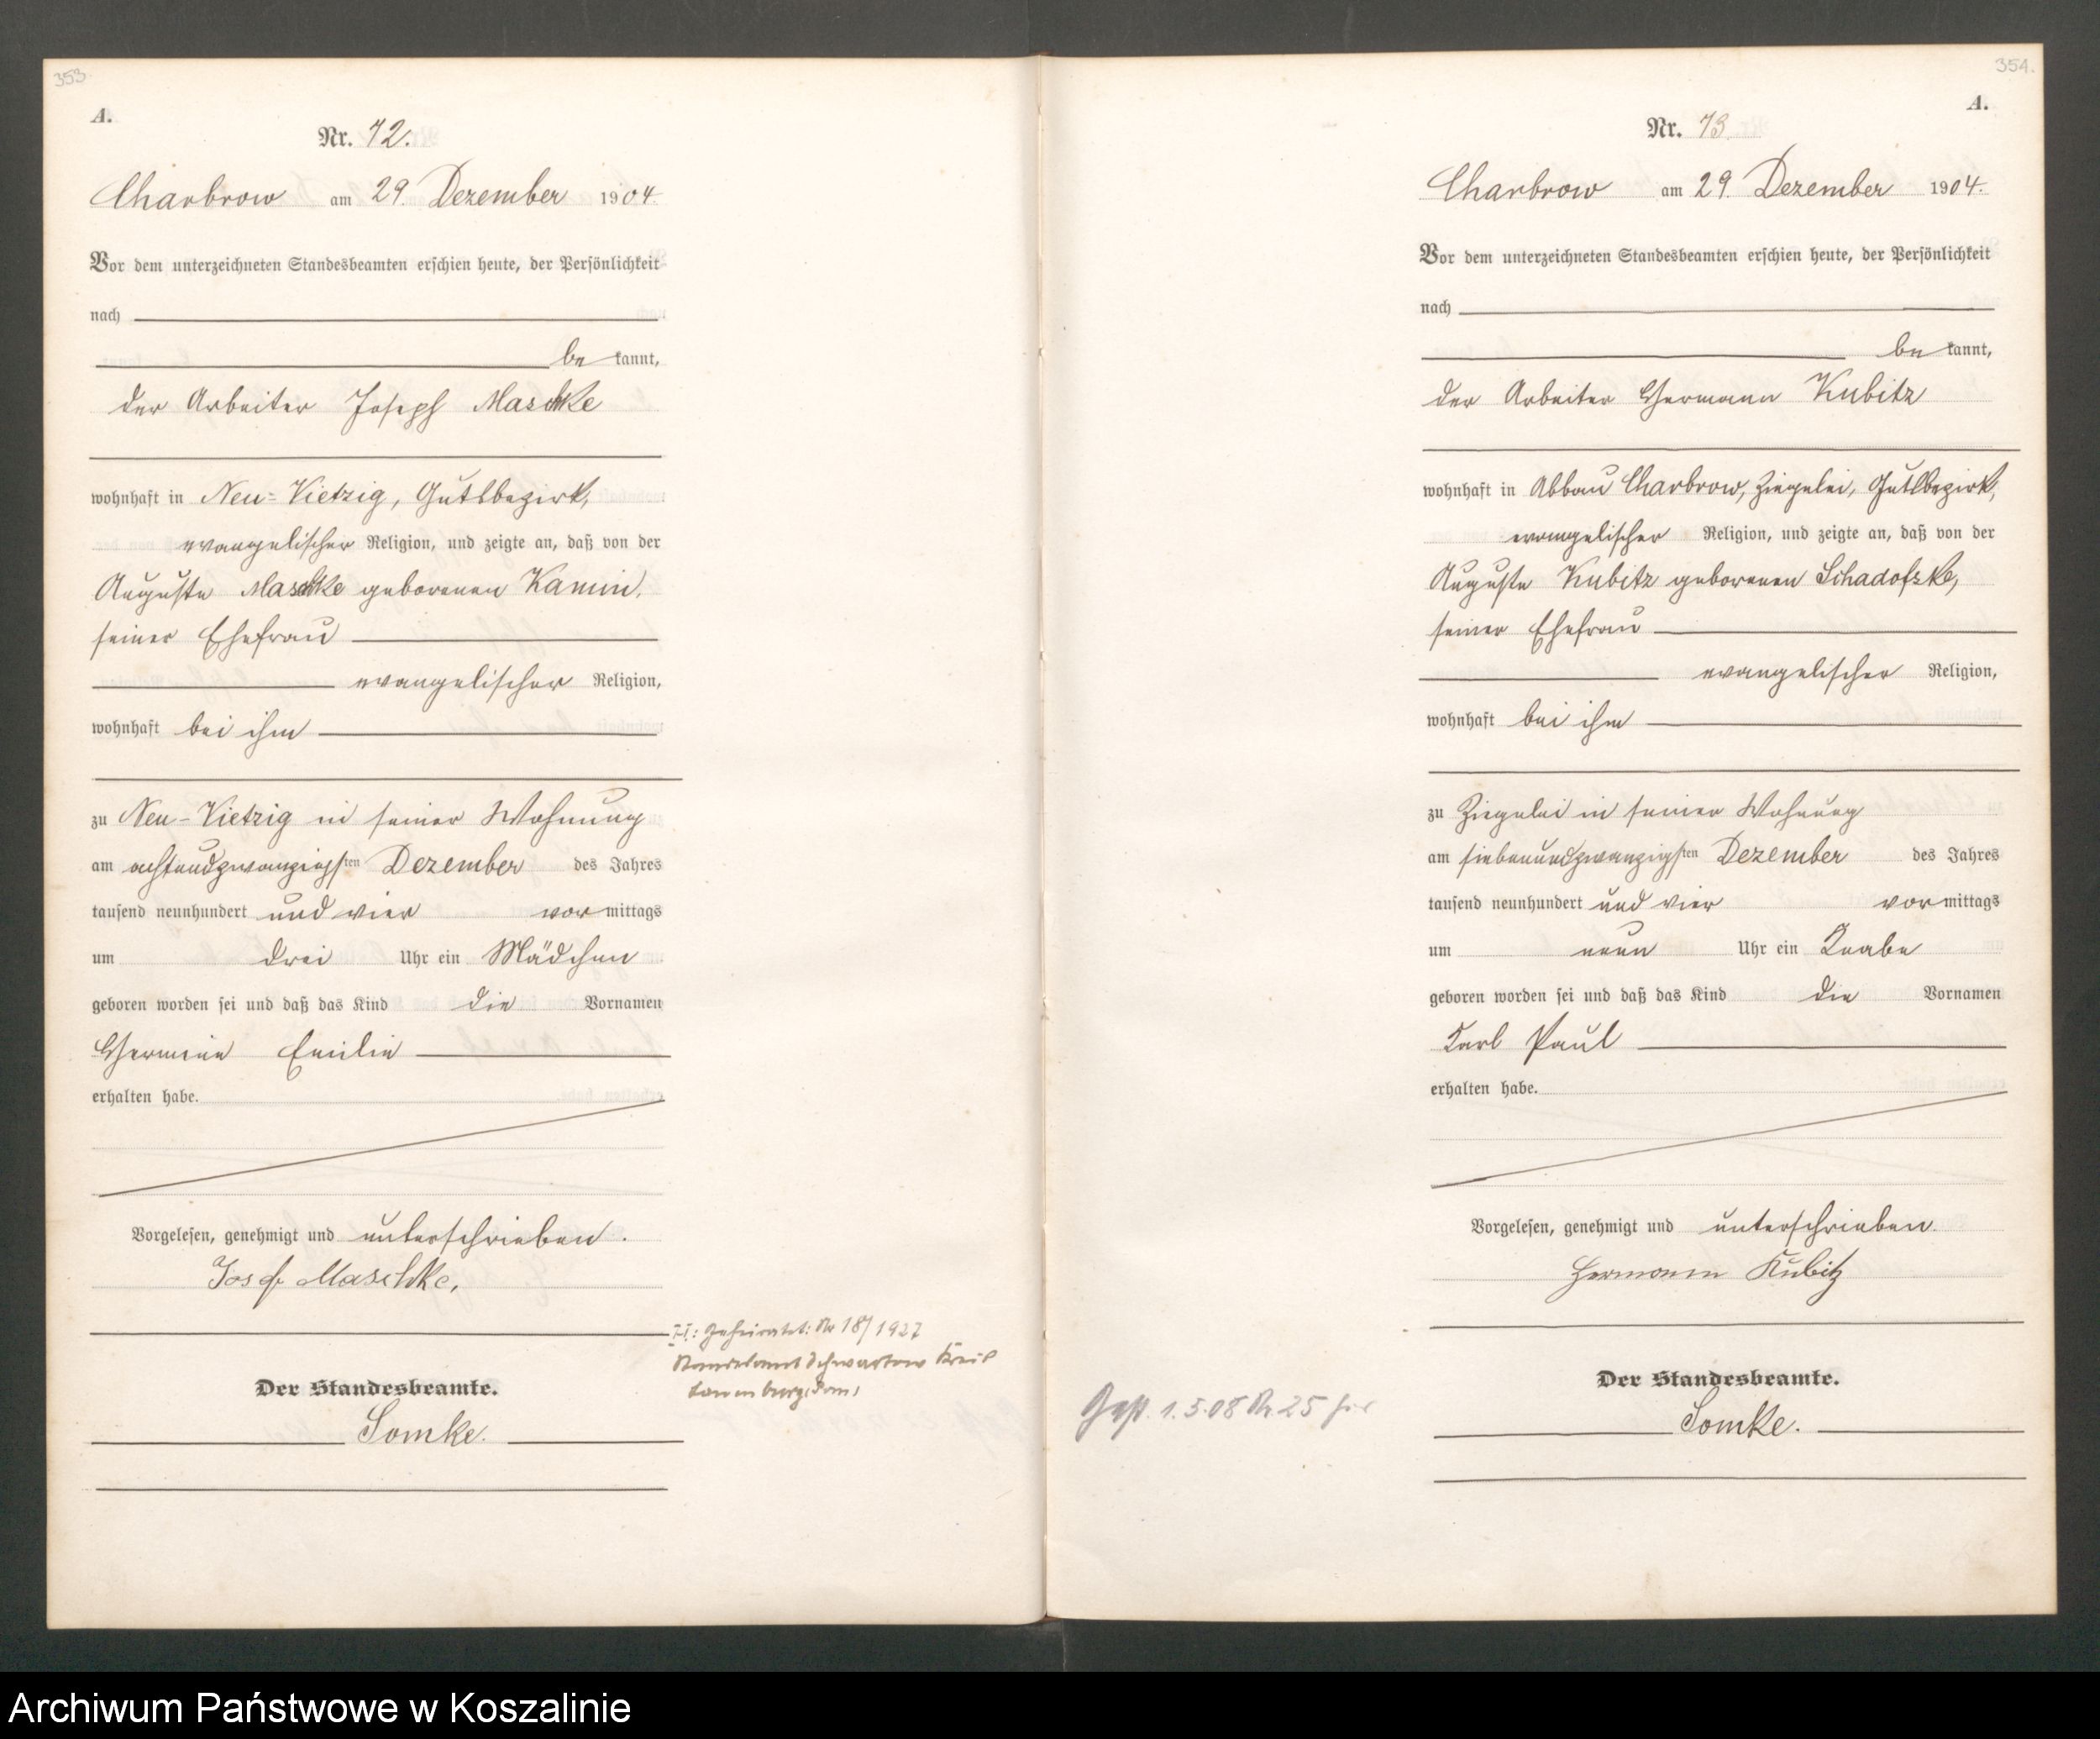 353
A.
Nr. 72.
Charbrow am 29. Dezember 1904.
Vor dem unterzeichneten Standesbeamten erschien heute, der Persönlichkeit
nach
be kannt,
der Arbeiter Joseph Maschke
wohnhaft in Neu-Vietzig, Gutsbezirk,
evangelischer Religion, und zeigte an, daß von der
Auguste Maschke geborenen Kamin,
seiner Ehefrau
evangelischer Religion,
wohnhaft bei ihm
zu Neu-Vietzig in seiner Wohnung
am achtundzwanzigsten Dezember des Jahres
tausend neunhundert und vier vor mittags
um drei Uhr ein Mädchen
geboren worden sei und daß das Kind die Vornamen
Hermine Emilie
erhalten habe.
Vorgelesen, genehmigt und unterschrieben.
Josef Maschke.
Geheiratet: Nr 18/1927
Standesamt Schwartow Kreis
Lauenburg, Pom,
Der Standesbeamte.
Somke.
354.
A.
Nr. 73
Charbrow am 29. Dezember 1904.
Vor dem unterzeichneten Standesbeamten erschien heute, der Persönlichkeit
nach
be kannt,
der Arbeiter Hermann Kubitz
wohnhaft in Abbau Charbrow, Ziegelei, Gutsbezirk,
evangelischer Religion, und zeigte an, daß von der
Auguste Kubitz geborenen Schadofzke,
seiner Ehefrau
evangelischer Religion,
wohnhaft bei ihm
zu Ziegelei in seiner Wohnung
am siebenundzwanzigsten Dezember des Jahres
tausend neunhundert und vier vor mittags
um neun Uhr ein Knabe
geboren worden sei und daß das Kind die Vornamen
Karl Paul
erhalten habe.
Vorgelesen, genehmigt und unterschrieben.
Hermann Kubitz
Gest. 1.5.08 Nr 25
Der Standesbeamte.
Somke.
Archiwum Państwowe w Koszalinie